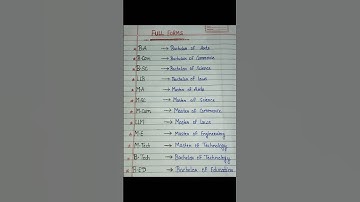 FULL FORMS
B.A → Bachelor of Arts
B.Com → Bachelor of Commerce
B.SC → Bachelor of Science
LLB → Bachelor of Laws
MA → Master of Arts
M.SC → Master of Science
M.Com → Master of Commerce
LLM → Master of Laws
M.E → Master of Engineering
M.Tech → Master of Technology
B.Tech → Bachelor of Technology
B.ED → Bachelor of Education